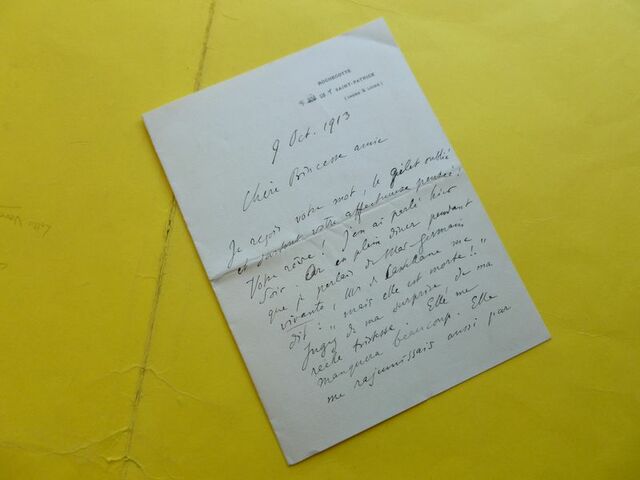 ROCHECOTTE
SAINT-PATRICE
(INDRE & LOIRE)
9 Oct. 1913
Chère Princesse amie
Je reçois votre mot, le gilet oublié
et surtout votre affectueuse pensée!
Votre rêve! J'en ai parlé hier
soir. Or en plein dîner pendant
que je parlais de Mme Germain
vivante, Mr de Castellane me
dit: "mais elle est morte!!"
Jugez de ma surprise, de ma
réelle tristesse. Elle me
manquera beaucoup. Elle
me rajeunissait aussi par